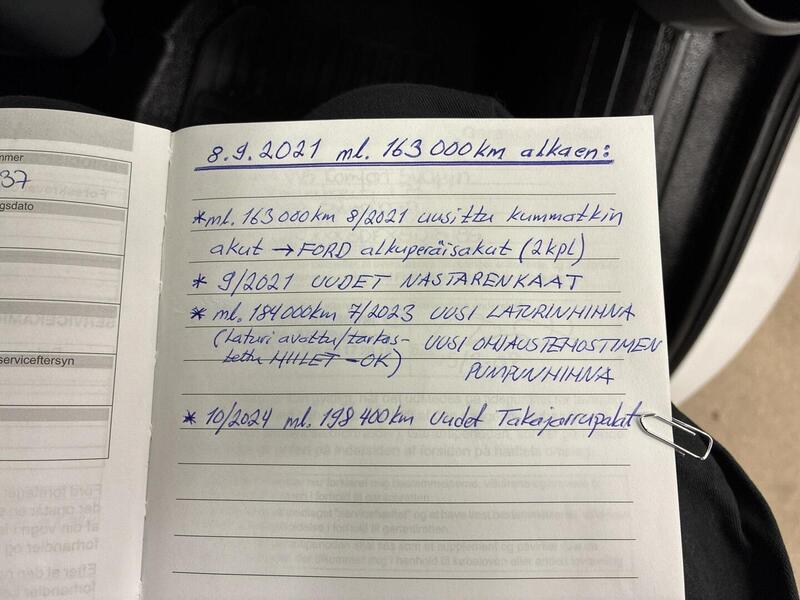 mmer
37
gsdato
serviceftersyn
8.9.2021 ml. 163 000km alkaen:
*ml. 163 000km 8/2021 uusittu kummatkin
akut → FORD alkuperäisakut (2kpl)
* 9/2021 UUDET NASTARENKAAT
* ml. 184 000km 7/2023 UUSI LATURINHIHNA
(Laturi avattu/tarkas- UUSI OHJAUSTEHOSTIMEN
tettu HIILET - OK) PUMPUNHIHNA
* 10/2024 ml. 198 400km Uudet Takajarrupalat